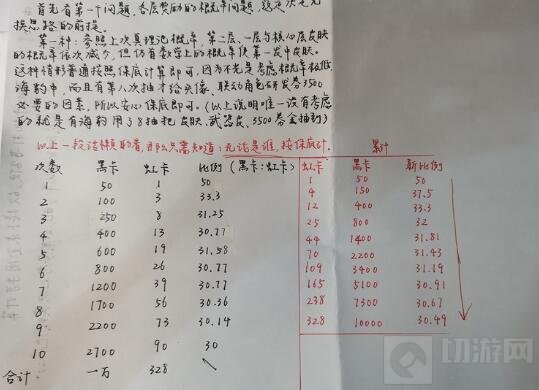 首先有第一个问题，各层奖励的概率问题，这是决定兑
换思路的前提。
第一种：参照上次真理池概率，第一层、一层与核心层皮肤
的概率依次减少，但仍有数学上的概率使第一发中皮肤。
这种情形普通按照保底计算即可，因为不光是考虑概率极低，
海豹中，而且有第八次抽才给头像，联动角色研发券3500
必要的因素，所以安心保底即可。（以上说明唯一没有考虑
的就是有海豹用了8抽把皮肤、武器皮、3500券全抽到）
以上一段话懒的看，只需知道：无论是谁，按保底计。
次数 黑卡 虹卡 比例（黑卡：虹卡）
1 50 1 50
2 100 3 33.3
3 250 8 31.25
4 400 13 30.77
5 600 19 31.58
6 800 26 30.77
7 1200 39 30.77
8 1700 56 30.36
9 2200 73 30.14
10 2700 90 30
合计 一万 328
累计
虹卡 黑卡 新比例
1 50 50
4 150 37.5
12 400 33.3
25 800 32
44 1400 31.81
70 2200 31.43
109 3400 31.19
165 5100 30.91
238 7300 30.67
328 10000 30.49
切游网